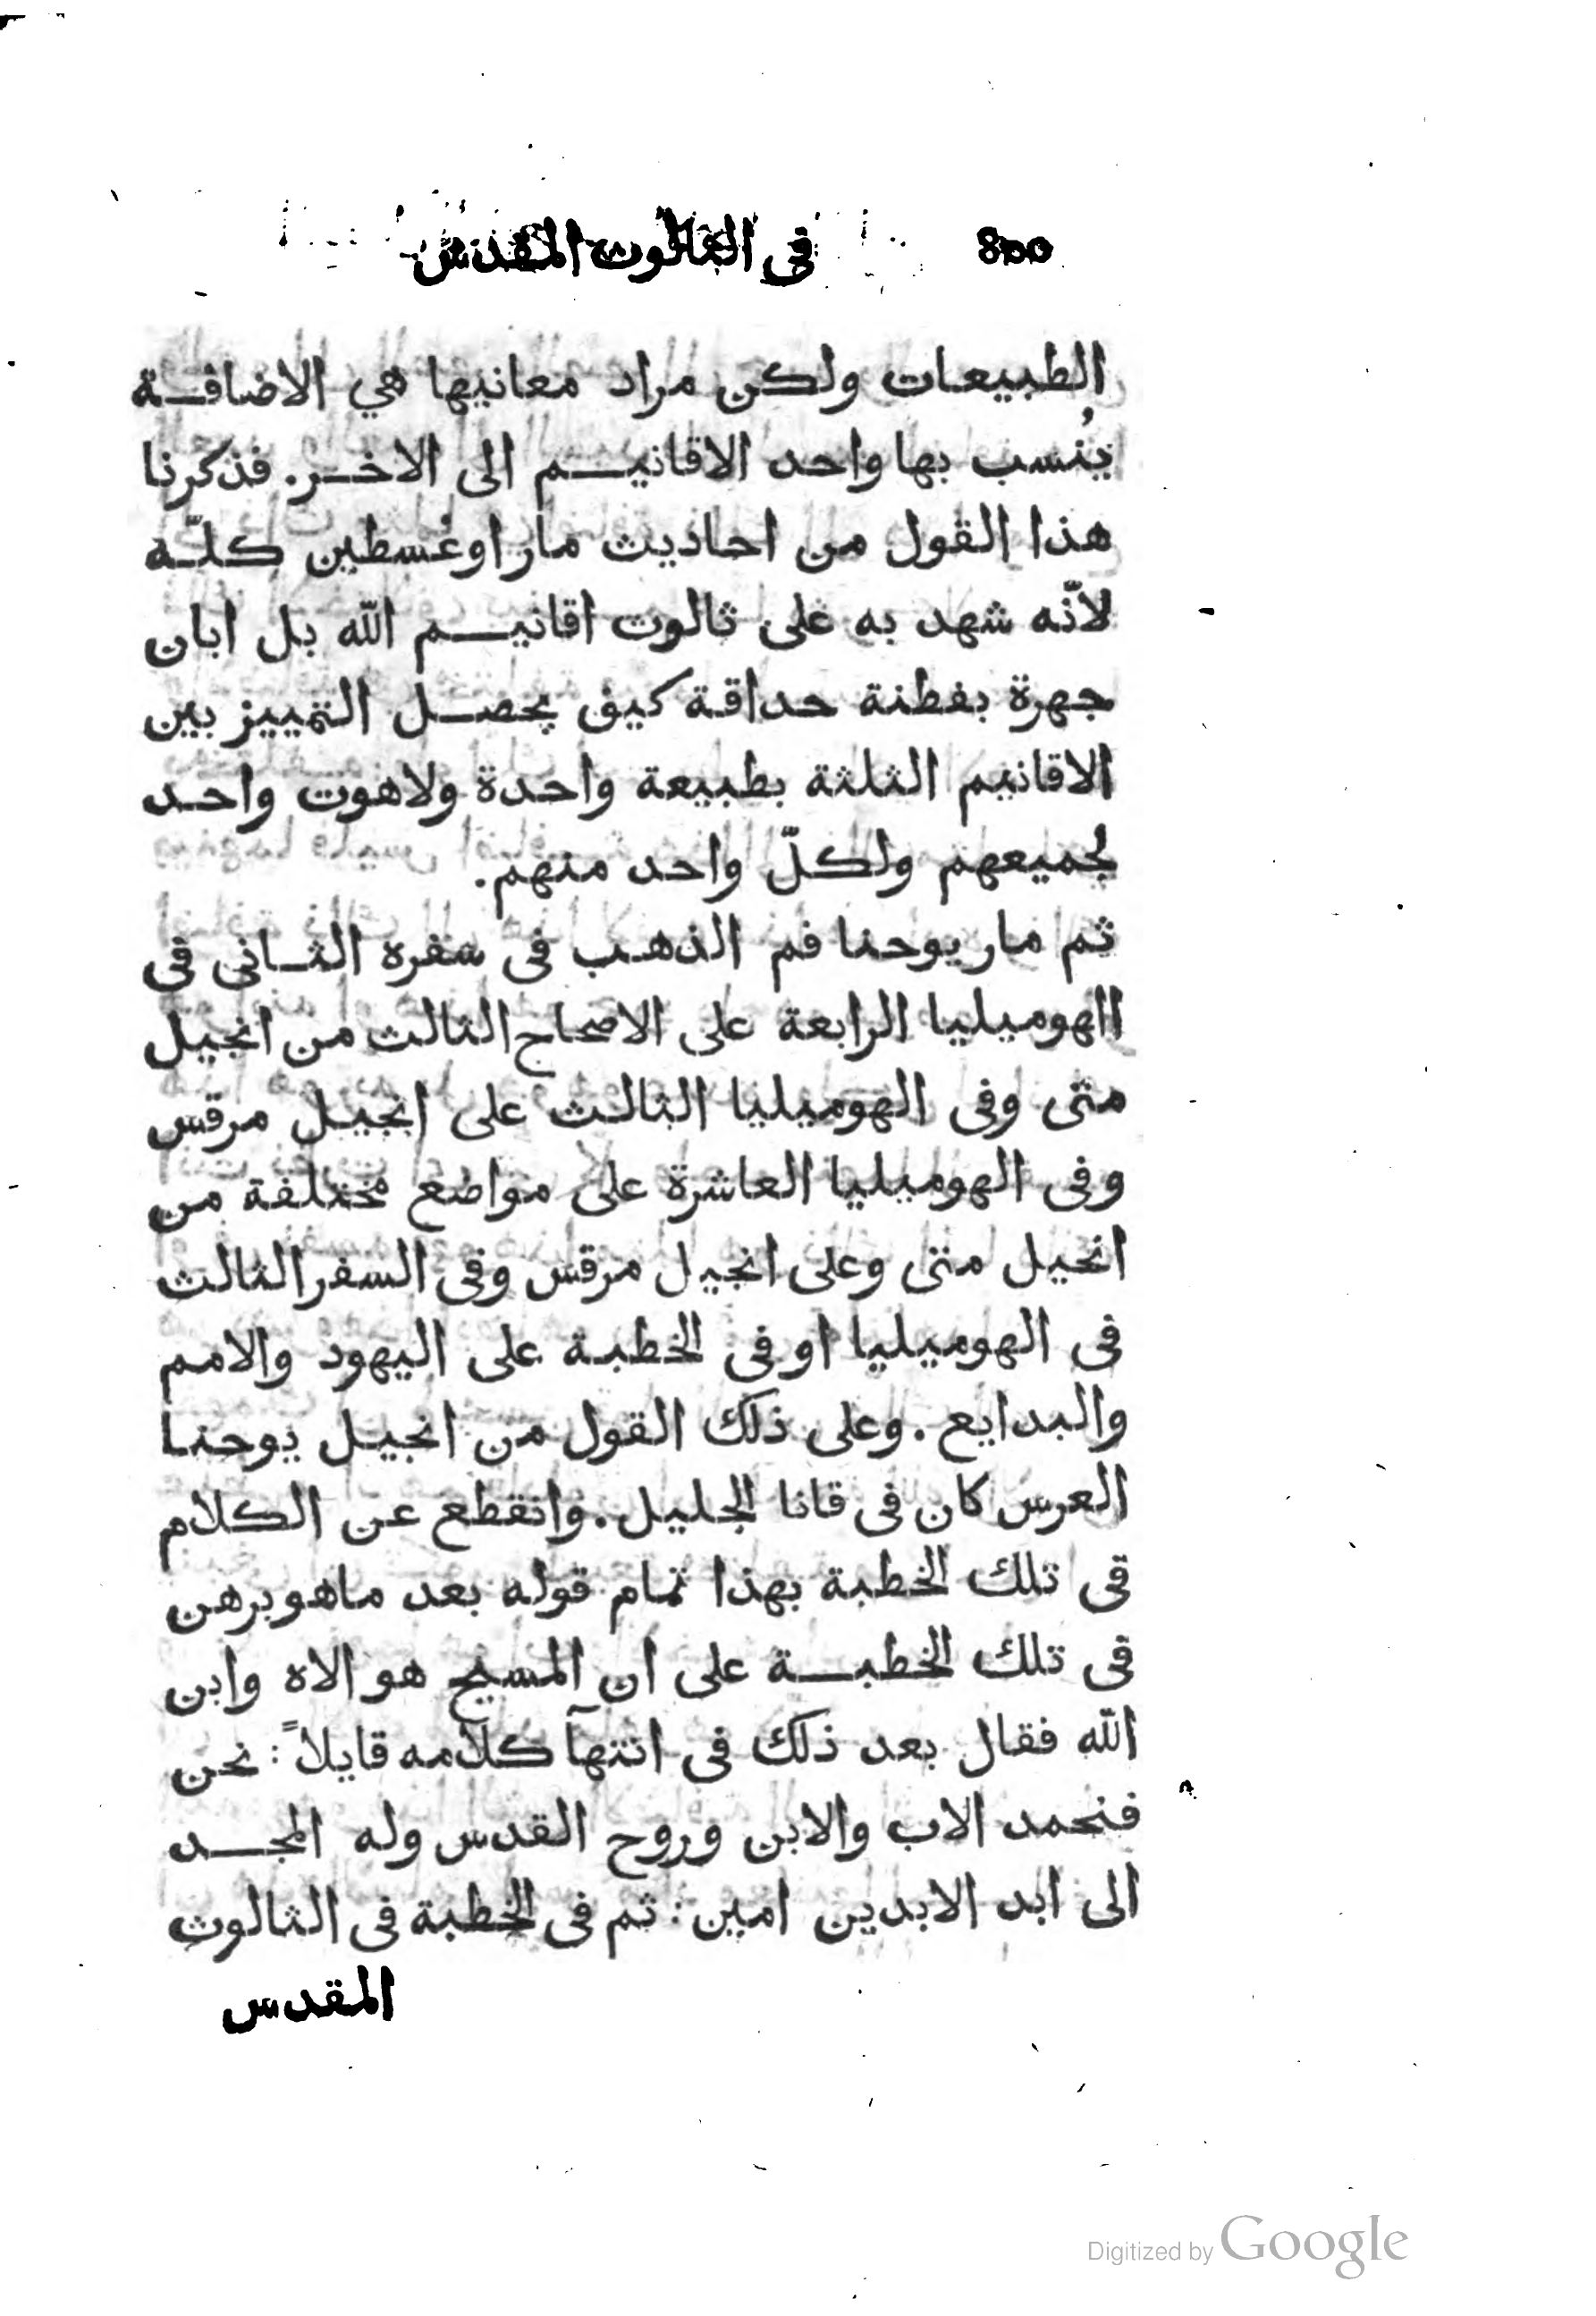 800 في الثالوث المقدس
الطبيعات ولكن مراد معانيها هي الاضافة
يُنسب بها واحد الاقانيم الى الاخر. فذكرنا
هذا القول من احاديث مار اوغسطين كلّه
لانّه شهد به على ثالوث اقانيم اللّه بل ابان
جهرة بفطنة حداقة كيف يحصل التمييز بين
الاقانيم الثلثة بطبيعة واحدة ولاهوت واحد
لجميعهم ولكلّ واحد منهم.
ثم مار يوحنا فم الذهب في سفره الثاني في
الهوميليا الرابعة على الاصحاح الثالث من انجيل
متى وفي الهوميليا الثالث على انجيل مرقس
وفي الهوميليا العاشرة على مواضع مختلفة من
انجيل متى وعلى انجيل مرقس وفي السفر الثالث
في الهوميليا او في الخطبة على اليهود والامم
والبدايع. وعلى ذلك القول من انجيل يوحنا
العرس كان في قانا الجليل. وانقطع عن الكلام
في تلك الخطبة بهذا تمام قوله بعد ماهو برهن
في تلك الخطبة على ان المسيح هو الاه وابن
اللّه فقال بعد ذلك في انتهآ كلامه قايلاً: نحن
فنحمد الاب والابن وروح القدس وله المجد
الى ابد الابدين امين: ثم في الخطبة في الثالوث
المقدس
Digitized by Google